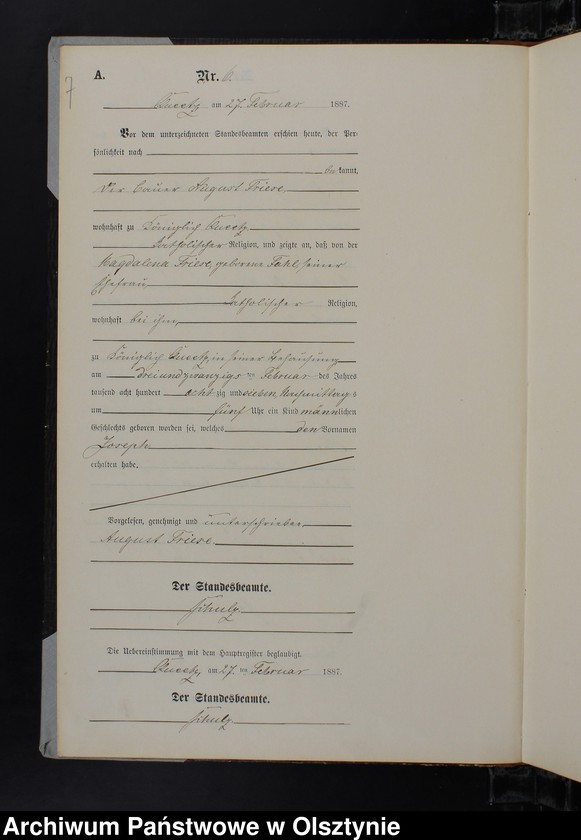 7
A.
Nr. 6.
Queetz am 27. Februar 1887.
Vor dem unterzeichneten Standesbeamten erschien heute, der Per-
sönlichkeit nach
be kannt,
der Bauer August Friese
wohnhaft zu Königlich Queetz
katholischer Religion, und zeigte an, daß von der
Magdalena Friese, geborene Fahl, seiner
Ehefrau
katholischer Religion,
wohnhaft bei ihm,
zu Königlich Queetz, in seiner Behausung
am dreiundzwanzigs ten Februar des Jahres
tausend acht hundert acht zig und sieben, Nachmittags
um fünf Uhr ein Kind männlichen
Geschlechts geboren worden sei, welches den Vornamen
Joseph
erhalten habe.
Vorgelesen, genehmigt und unterschrieben
August Friese
Der Standesbeamte.
Schulz
Die Uebereinstimmung mit dem Hauptregister beglaubigt.
Queetz, am 27. ten Februar 1887.
Der Standesbeamte.
Schulz
Archiwum Państwowe w Olsztynie